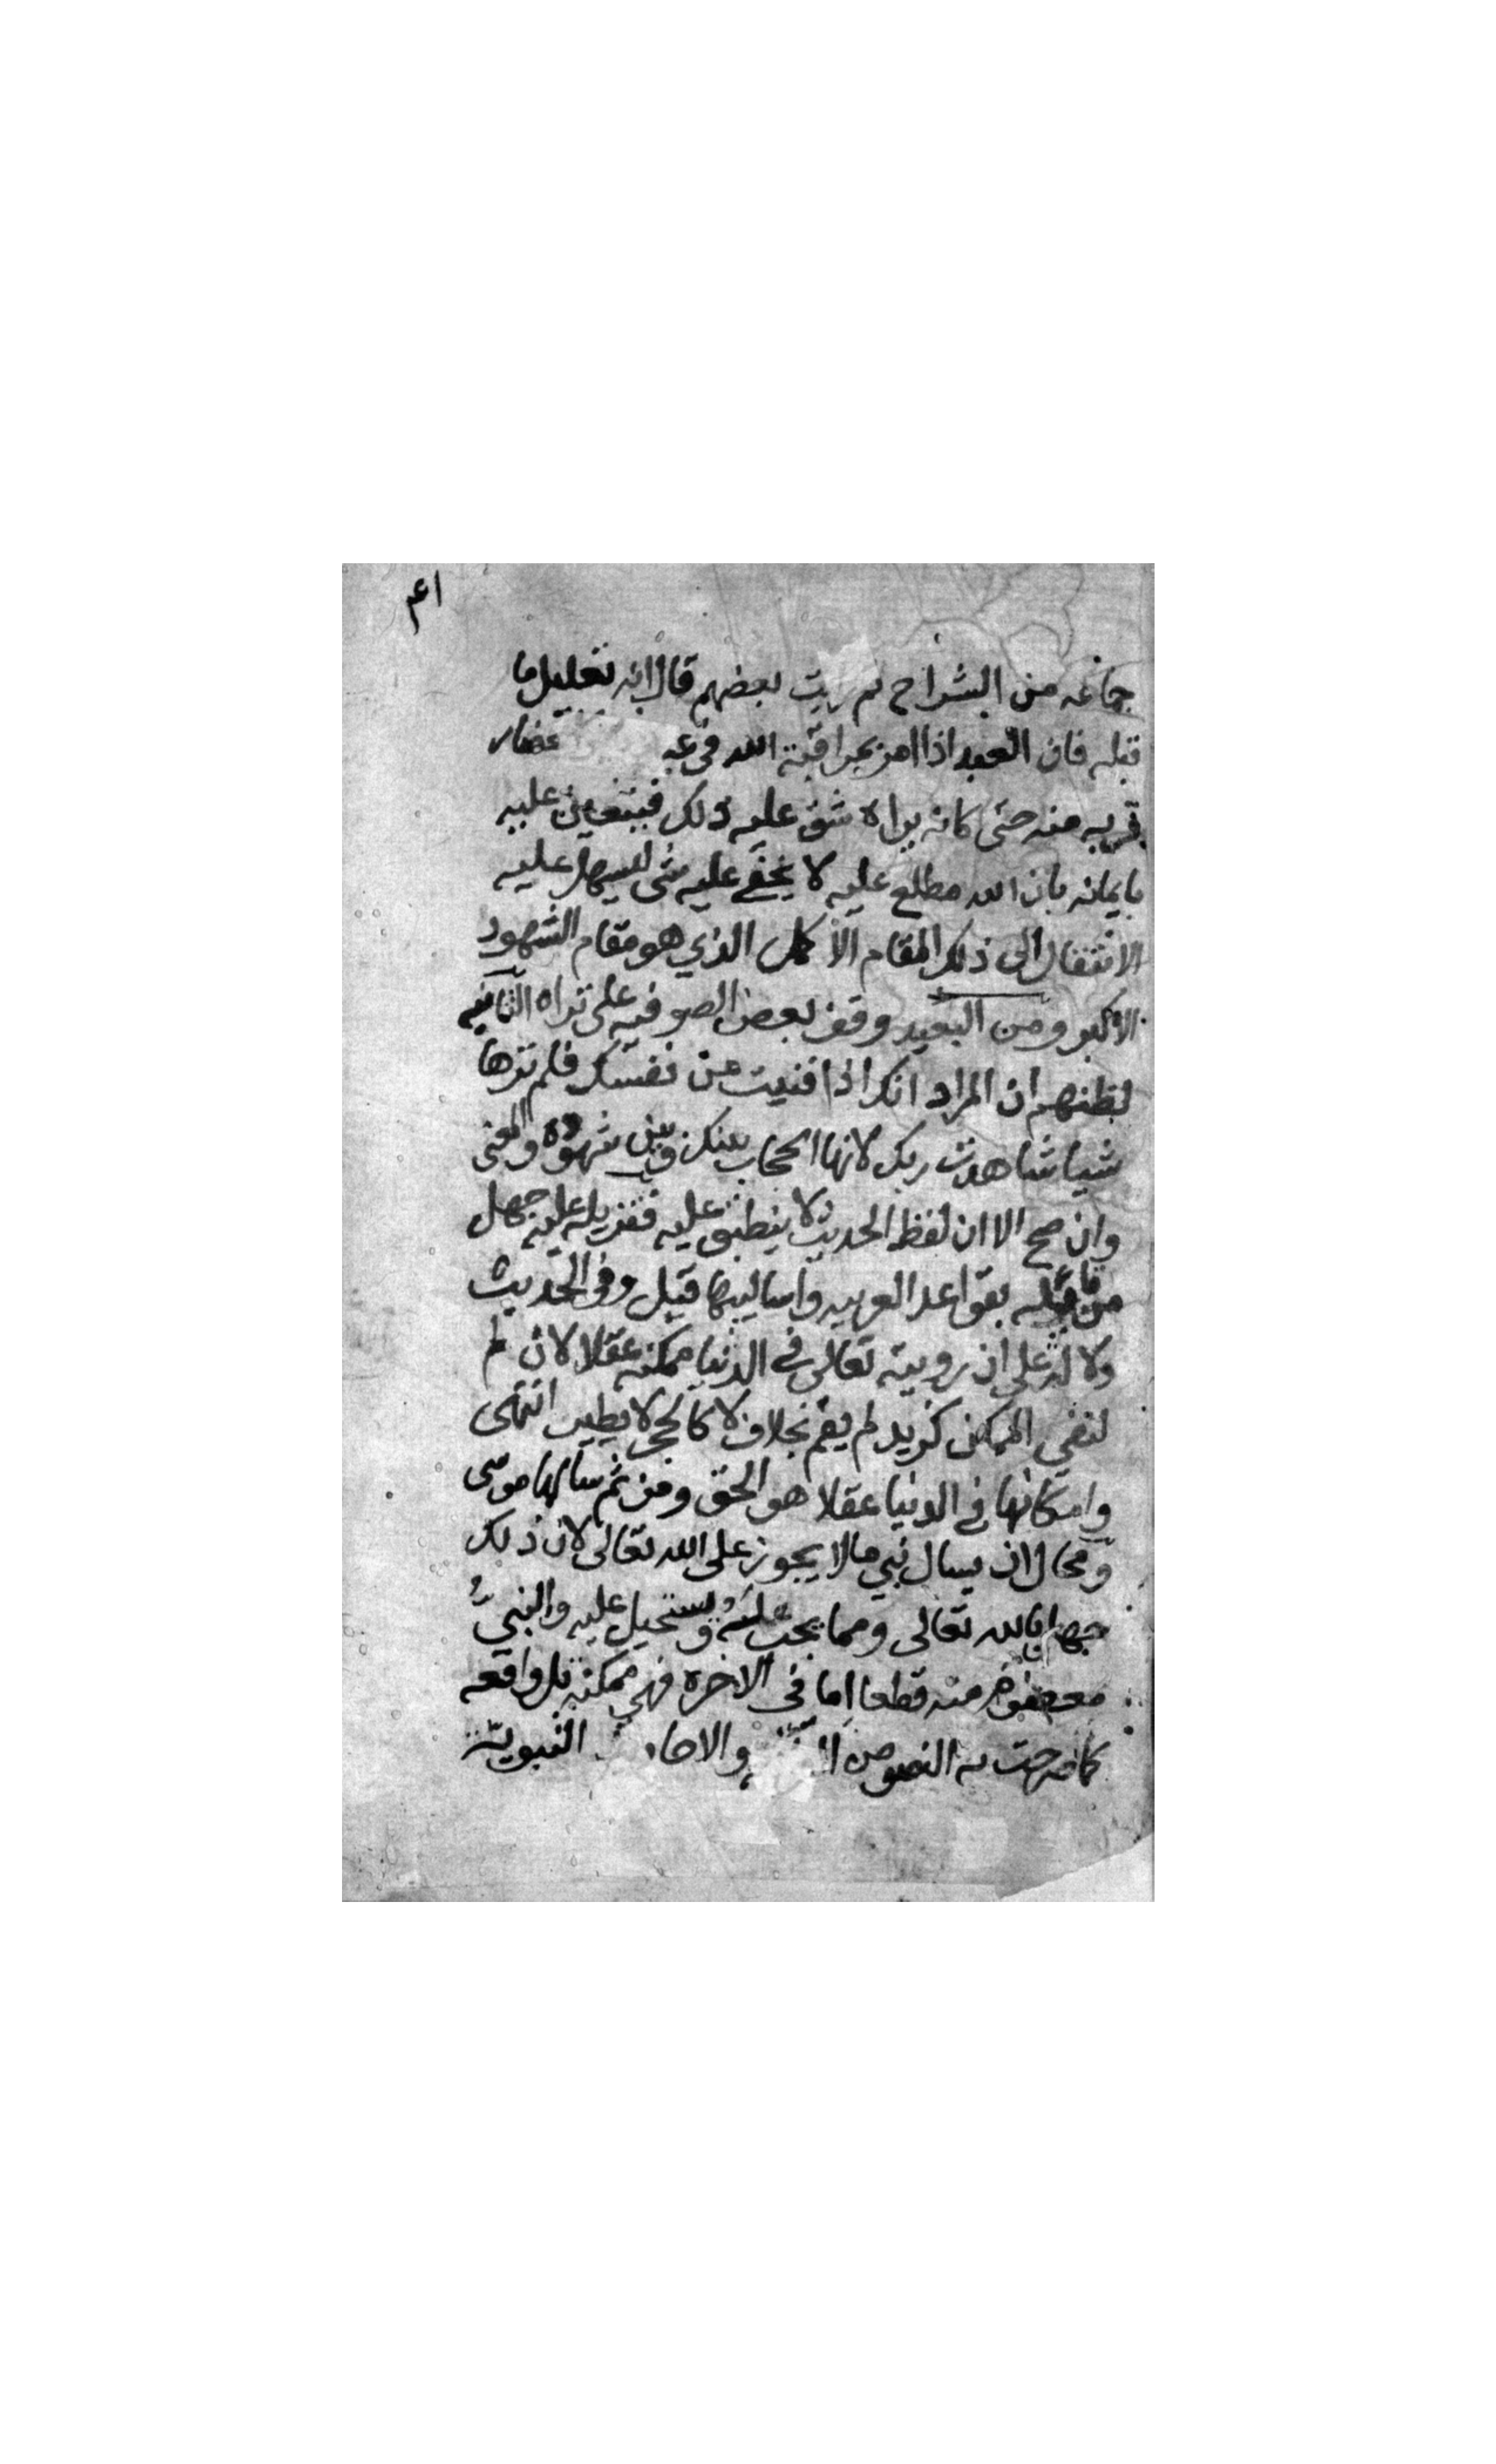 ا٤م
جماعه من الشراح ثم رايت بعضهم قال انه تعليل ما
قبله فان العبد اذا امر بمراقبة الله في عبا
بقربه منه حتى كانه يراه شق عليه ذلك فيستعين عليه
بايمانه بان الله مطلع عليه لا يخفى عليه شي ليسهل عليه
الانتقال الى ذلك المقام الاكمل الذي هو مقام الشهود
الاكبر ومن البعيد وقف بعض الصوفيه على تراه الثانيه
لظنهم ان المراد انك اذا فنيت من نفسك فلم ترها
شيا شاهدت ربك لانها الحجاب بينك وبين شهوده والمعنى
وان صح الا ان لفظ الحديث لا ينطبق عليه فتنزيله عليه جهل
من قائله بقواعد العربيه واساليبها قيل وفي الحديث
دلالة على ان رويته تعالى في الدنيا ممكنه عقلا لان لم
لنفي الممكن كزيد لم يقم بخلاف لا كالحجر لا يطير انتهى
وامكانها في الدنيا عقلا هو الحق ومن ثم سالها موسى
ومحال ان يسال نبي ما لا يجوز على الله تعالى لان ذلك
جهل بالله تعالى ومما يجب عليه ويستحيل عليه والنبي
معصوم منه قطعا اما في الاخره فهي ممكنه بل واقعه
كما صرحت به النصوص والاحا النبوية